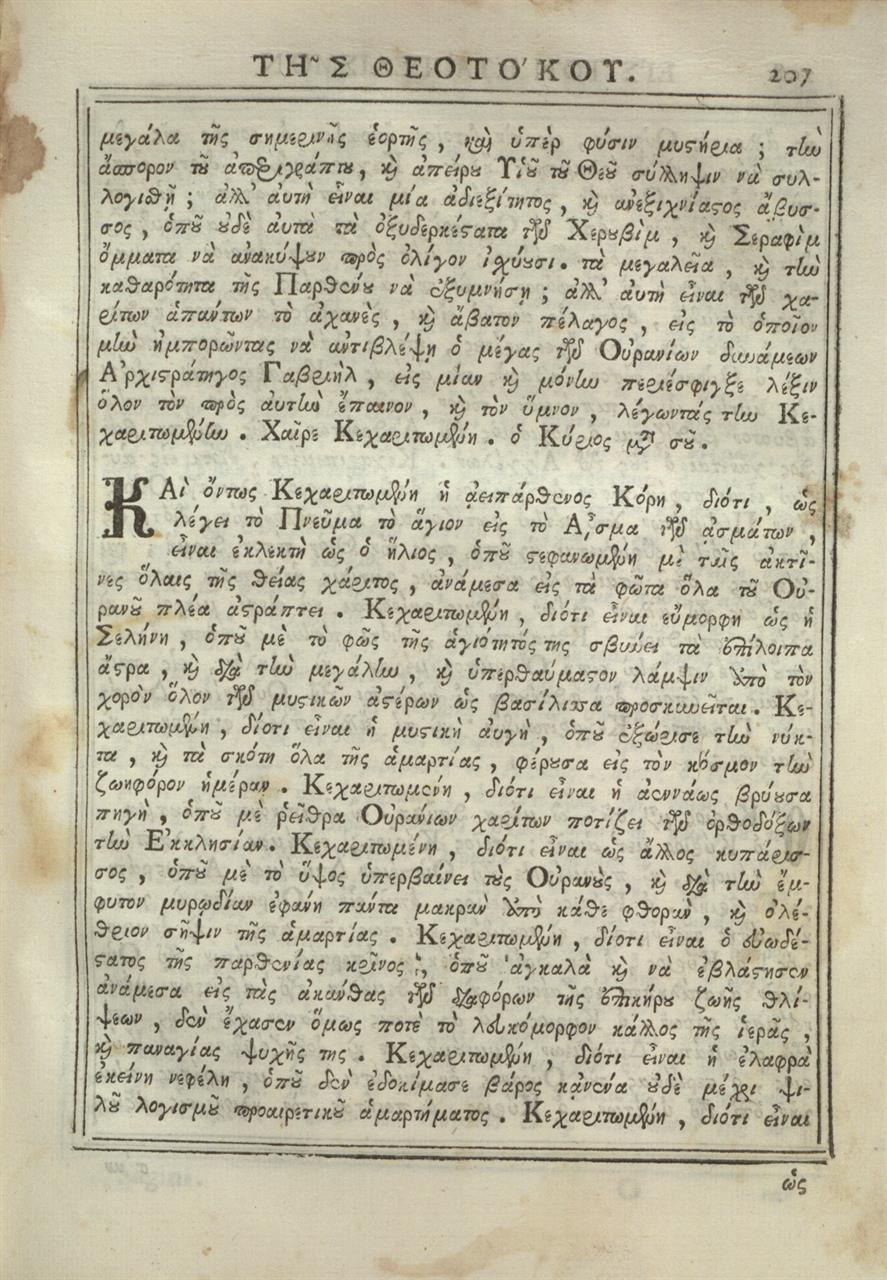 ΤΗ͂Σ ΘΕΟΤΟ΄ΚΟΥ. 207
μεγάλα τῆς σημερινῆς ἑορτῆς, καὶ ὑπὲρ φύσιν μυστήρια; τὴν
ἄσπορον τοῦ ἀπεριγράπτου, καὶ ἀπείρου Υἱοῦ τοῦ Θεοῦ σύλληψιν νὰ συλ-
λογισθῇ; ἀλλ' αὐτὴ εἶναι μία ἀδιεξίτητος, καὶ ἀνεξιχνίαστος ἄβυσ-
σος, ὁποῦ οὐδὲ αὐτὰ τὰ ὀξυδερκέστατα τῶν Χερουβὶμ, καὶ Σεραφὶμ
ὄμματα νὰ ἀνακύψουν πρὸς ὀλίγον ἰσχύουσι. τὰ μεγαλεῖα, καὶ τὴν
καθαρότητα τῆς Παρθένου νὰ ἐξυμνήσῃ; ἀλλ' αὐτὴ εἶναι τῶν χα-
ρίτων ἁπάντων τὸ ἀχανὲς, καὶ ἄβατον πέλαγος, εἰς τὸ ὁποῖον
μὴν ἠμπορῶντας νὰ ἀντιβλέψῃ ὁ μέγας τῶν Οὐρανίων δυνάμεων
Ἀρχιστράτηγος Γαβριὴλ, εἰς μίαν καὶ μόνην περιέσφιγξε λέξιν
ὅλον τὸν πρὸς αὐτὴν ἔπαινον, καὶ τὸν ὕμνον, λέγωντάς την Κε-
χαριτωμένην. Χαῖρε Κεχαριτωμένη. ὁ Κύριος μετὰ σοῦ.
ΚΑὶ ὄντως Κεχαριτωμένη ἡ ἀειπάρθενος Κόρη, διότι, ὡς
λέγει τὸ Πνεῦμα τὸ ἅγιον εἰς τὸ ᾎσμα τῶν ᾀσμάτων,
εἶναι ἐκλεκτὴ ὡς ὁ ἥλιος, ὁποῦ στεφανωμένη μὲ ταῖς ἀκτῖ-
νες ὅλαις τῆς θείας χάριτος, ἀνάμεσα εἰς τὰ φῶτα ὅλα τοῦ Οὐ-
ρανοῦ πλέα ἀστράπτει. Κεχαριτωμένη, διότι εἶναι εὔμορφη ὡς ἡ
Σελήνη, ὁποῦ μὲ τὸ φῶς τῆς ἁγιότητός της σβυνει τὰ ἐπίλοιπα
ἄστρα, καὶ διὰ τὴν μεγάλην, καὶ ὑπερθαύμαστον λάμψιν ὑπὸ τὸν
χορὸν ὅλον τῶν μυστικῶν ἀστέρων ὡς βασίλισσα προσκυνεῖται. Κε-
χαριτωμένη, διότι εἶναι ἡ μυστικὴ αὐγὴ, ὁποῦ ἐξώρισε τὴν νύκ-
τα, καὶ τὰ σκότη ὅλα τῆς ἁμαρτίας, φέρουσα εἰς τὸν κόσμον τὴν
ζωηφόρον ἡμέραν. Κεχαριτωμένη, διότι εἶναι ἡ ἀεννάως βρύουσα
πηγὴ, ὁποῦ μὲ ῥεῖθρα Οὐρανίων χαρίτων ποτίζει τῶν ὀρθοδόξων
τὴν Ἐκκλησίαν. Κεχαριτωμένη, διότι εἶναι ὡς ἄλλος κυπάρισ-
σος, ὁποῦ μὲ τὸ ὕψος ὑπερβαίνει τοὺς Οὐρανοὺς, καὶ διὰ τὴν ἔμ-
φυτον μυρωδίαν ἐφάνη πάντα μακρὰν ἀπὸ κάθε φθορὰν, καὶ ὀλέ-
θριον σῆψιν τῆς ἁμαρτίας. Κεχαριτωμένη, διότι εἶναι ὁ εὐωδέ-
στατος τῆς παρθενίας κρῖνος, ὁποῦ ἀγκαλὰ καὶ νὰ ἐβλάστησεν
ἀνάμεσα εἰς τὰς ἀκάνθας τῶν διαφόρων τῆς ἐπικήρου ζωῆς θλί-
ψεων, δὲν ἔχασεν ὅμως ποτὲ τὸ λευκόμορφον κάλλος τῆς ἱερᾶς,
καὶ παναγίας ψυχῆς της. Κεχαριτωμένη, διότι εἶναι ἡ ἐλαφρὰ
ἐκείνη νεφέλη, ὁποῦ δὲν ἐδοκίμασε βάρος κανένα οὐδὲ μέχρι ψι-
λοῦ λογισμοῦ προαιρετικοῦ ἁμαρτήματος. Κεχαριτωμένη, διότι εἶναι
ὡς